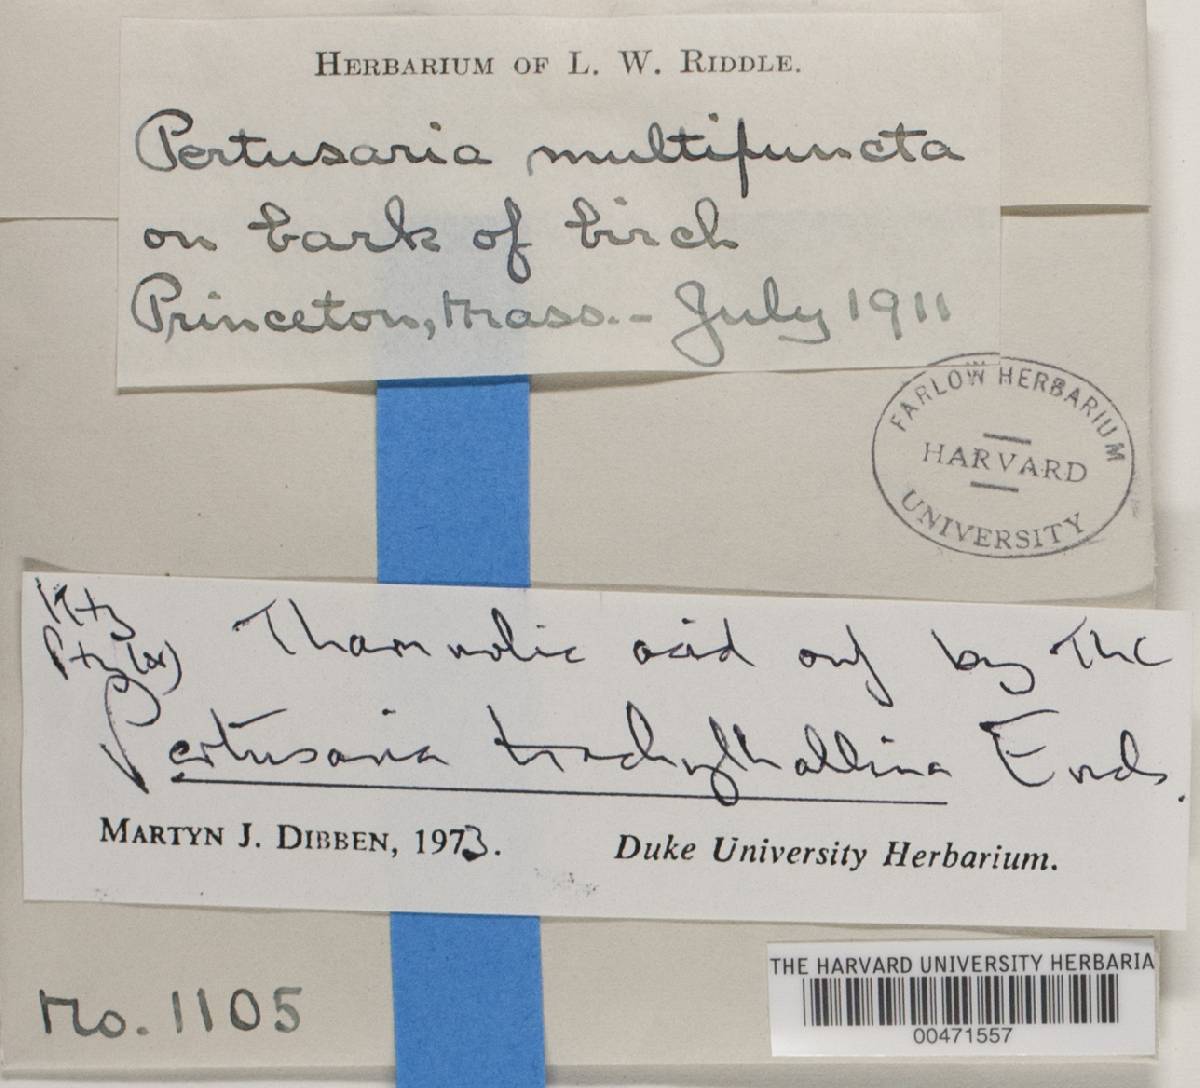 HERBARIUM OF L. W. RIDDLE.
Pertusaria multipuncta
on bark of birch
Princeton, Mass. - July 1911
FARLOW HERBARIUM
HARVARD
UNIVERSITY
K+y
P+y(or) Thamnolic acid only by TLC
Pertusaria trachythallina Erichs.
MARTYN J. DIBBEN, 1973. Duke University Herbarium.
No. 1105
THE HARVARD UNIVERSITY HERBARIA
00471557